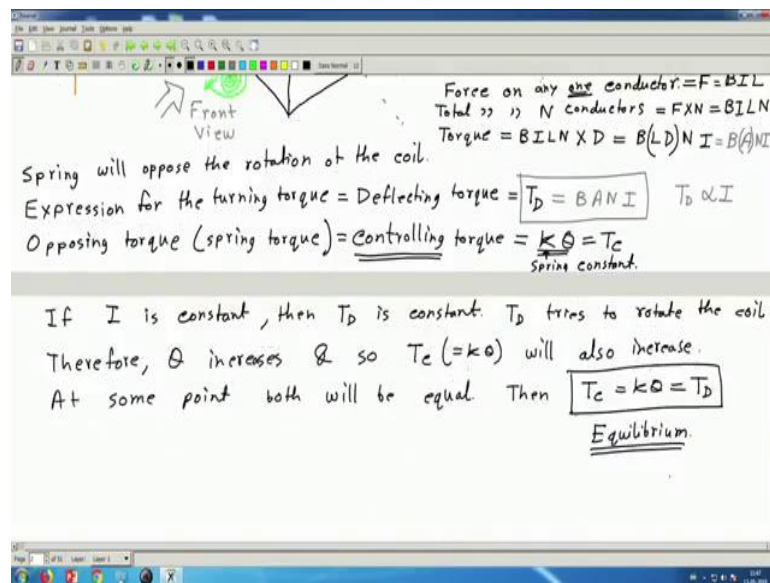 File Edit View Journal Tools Options Help
Front
View
Force on any one conductor = F = BIL
Total ,, ,, N conductors = F X N = BILN
Torque = BILN X D = B(LD)N I = B(A)NI
Spring will oppose the rotation of the coil.
Expression for the turning torque = Deflecting torque = T_D = BANI T_D ∝ I
Opposing torque (spring torque) = controlling torque = kθ = Tc
Spring constant.
If I is constant, then T_D is constant. T_D tries to rotate the coil
Therefore, θ increases & so Tc (=kθ) will also increase.
At some point both will be equal. Then Tc = kθ = T_D
Equilibrium.